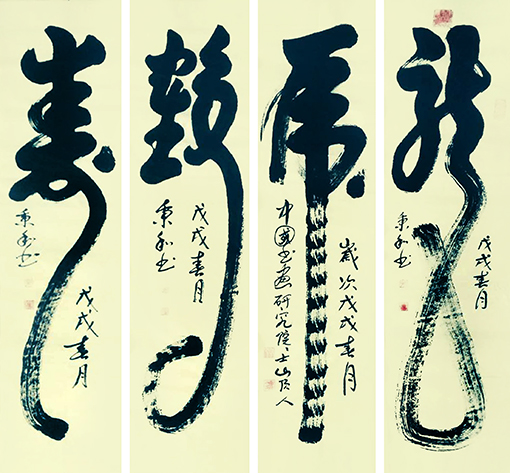 龍
戊戌春月
秉和书
虎
歲次戊戌春月
中国书画研究院
鶴
戊戌春月
秉和书
寿
戊戌春月
秉和书